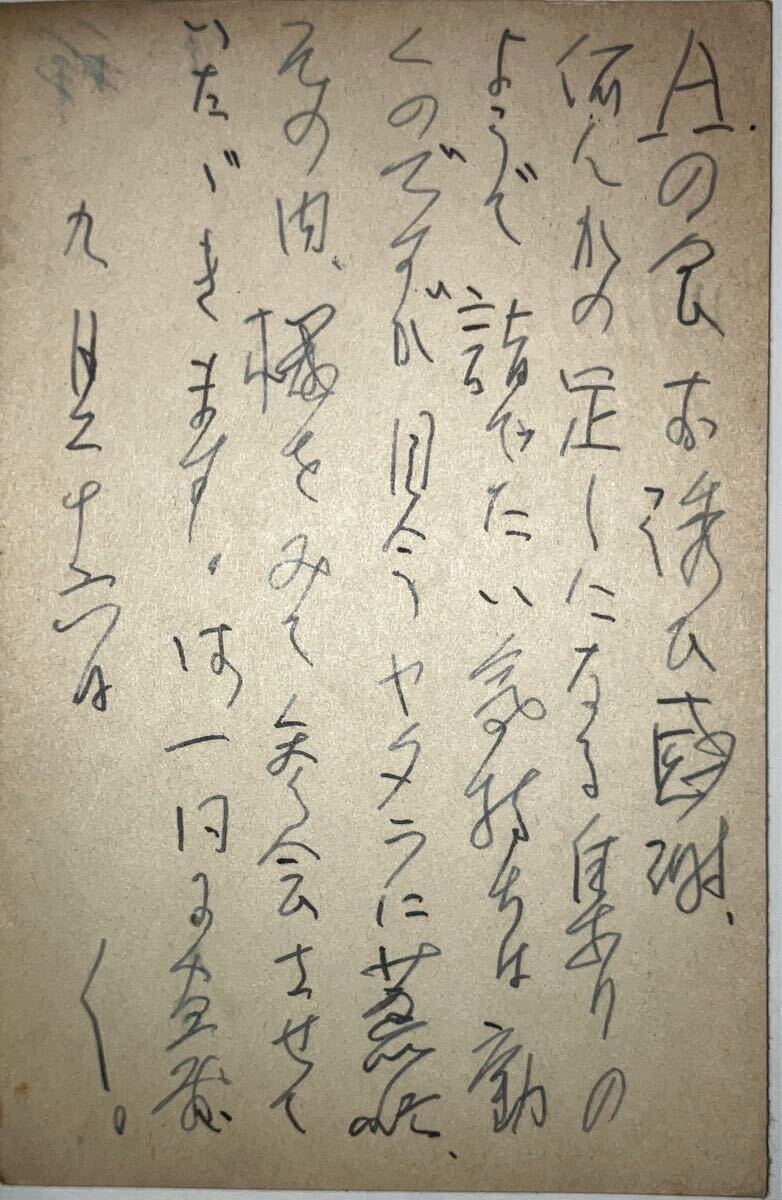 Aの会お誘ひ感謝、
何んかの足しになる集ありの
ようで 詣でたい気持ちは動
くのですが 目今ヤタラに
その内、機をみて参会させて
いただきます。 一日
九月十六日